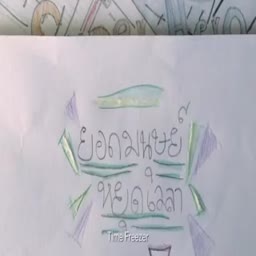 ยอดมนุษย์
หยุดเวลา
Time Freezer